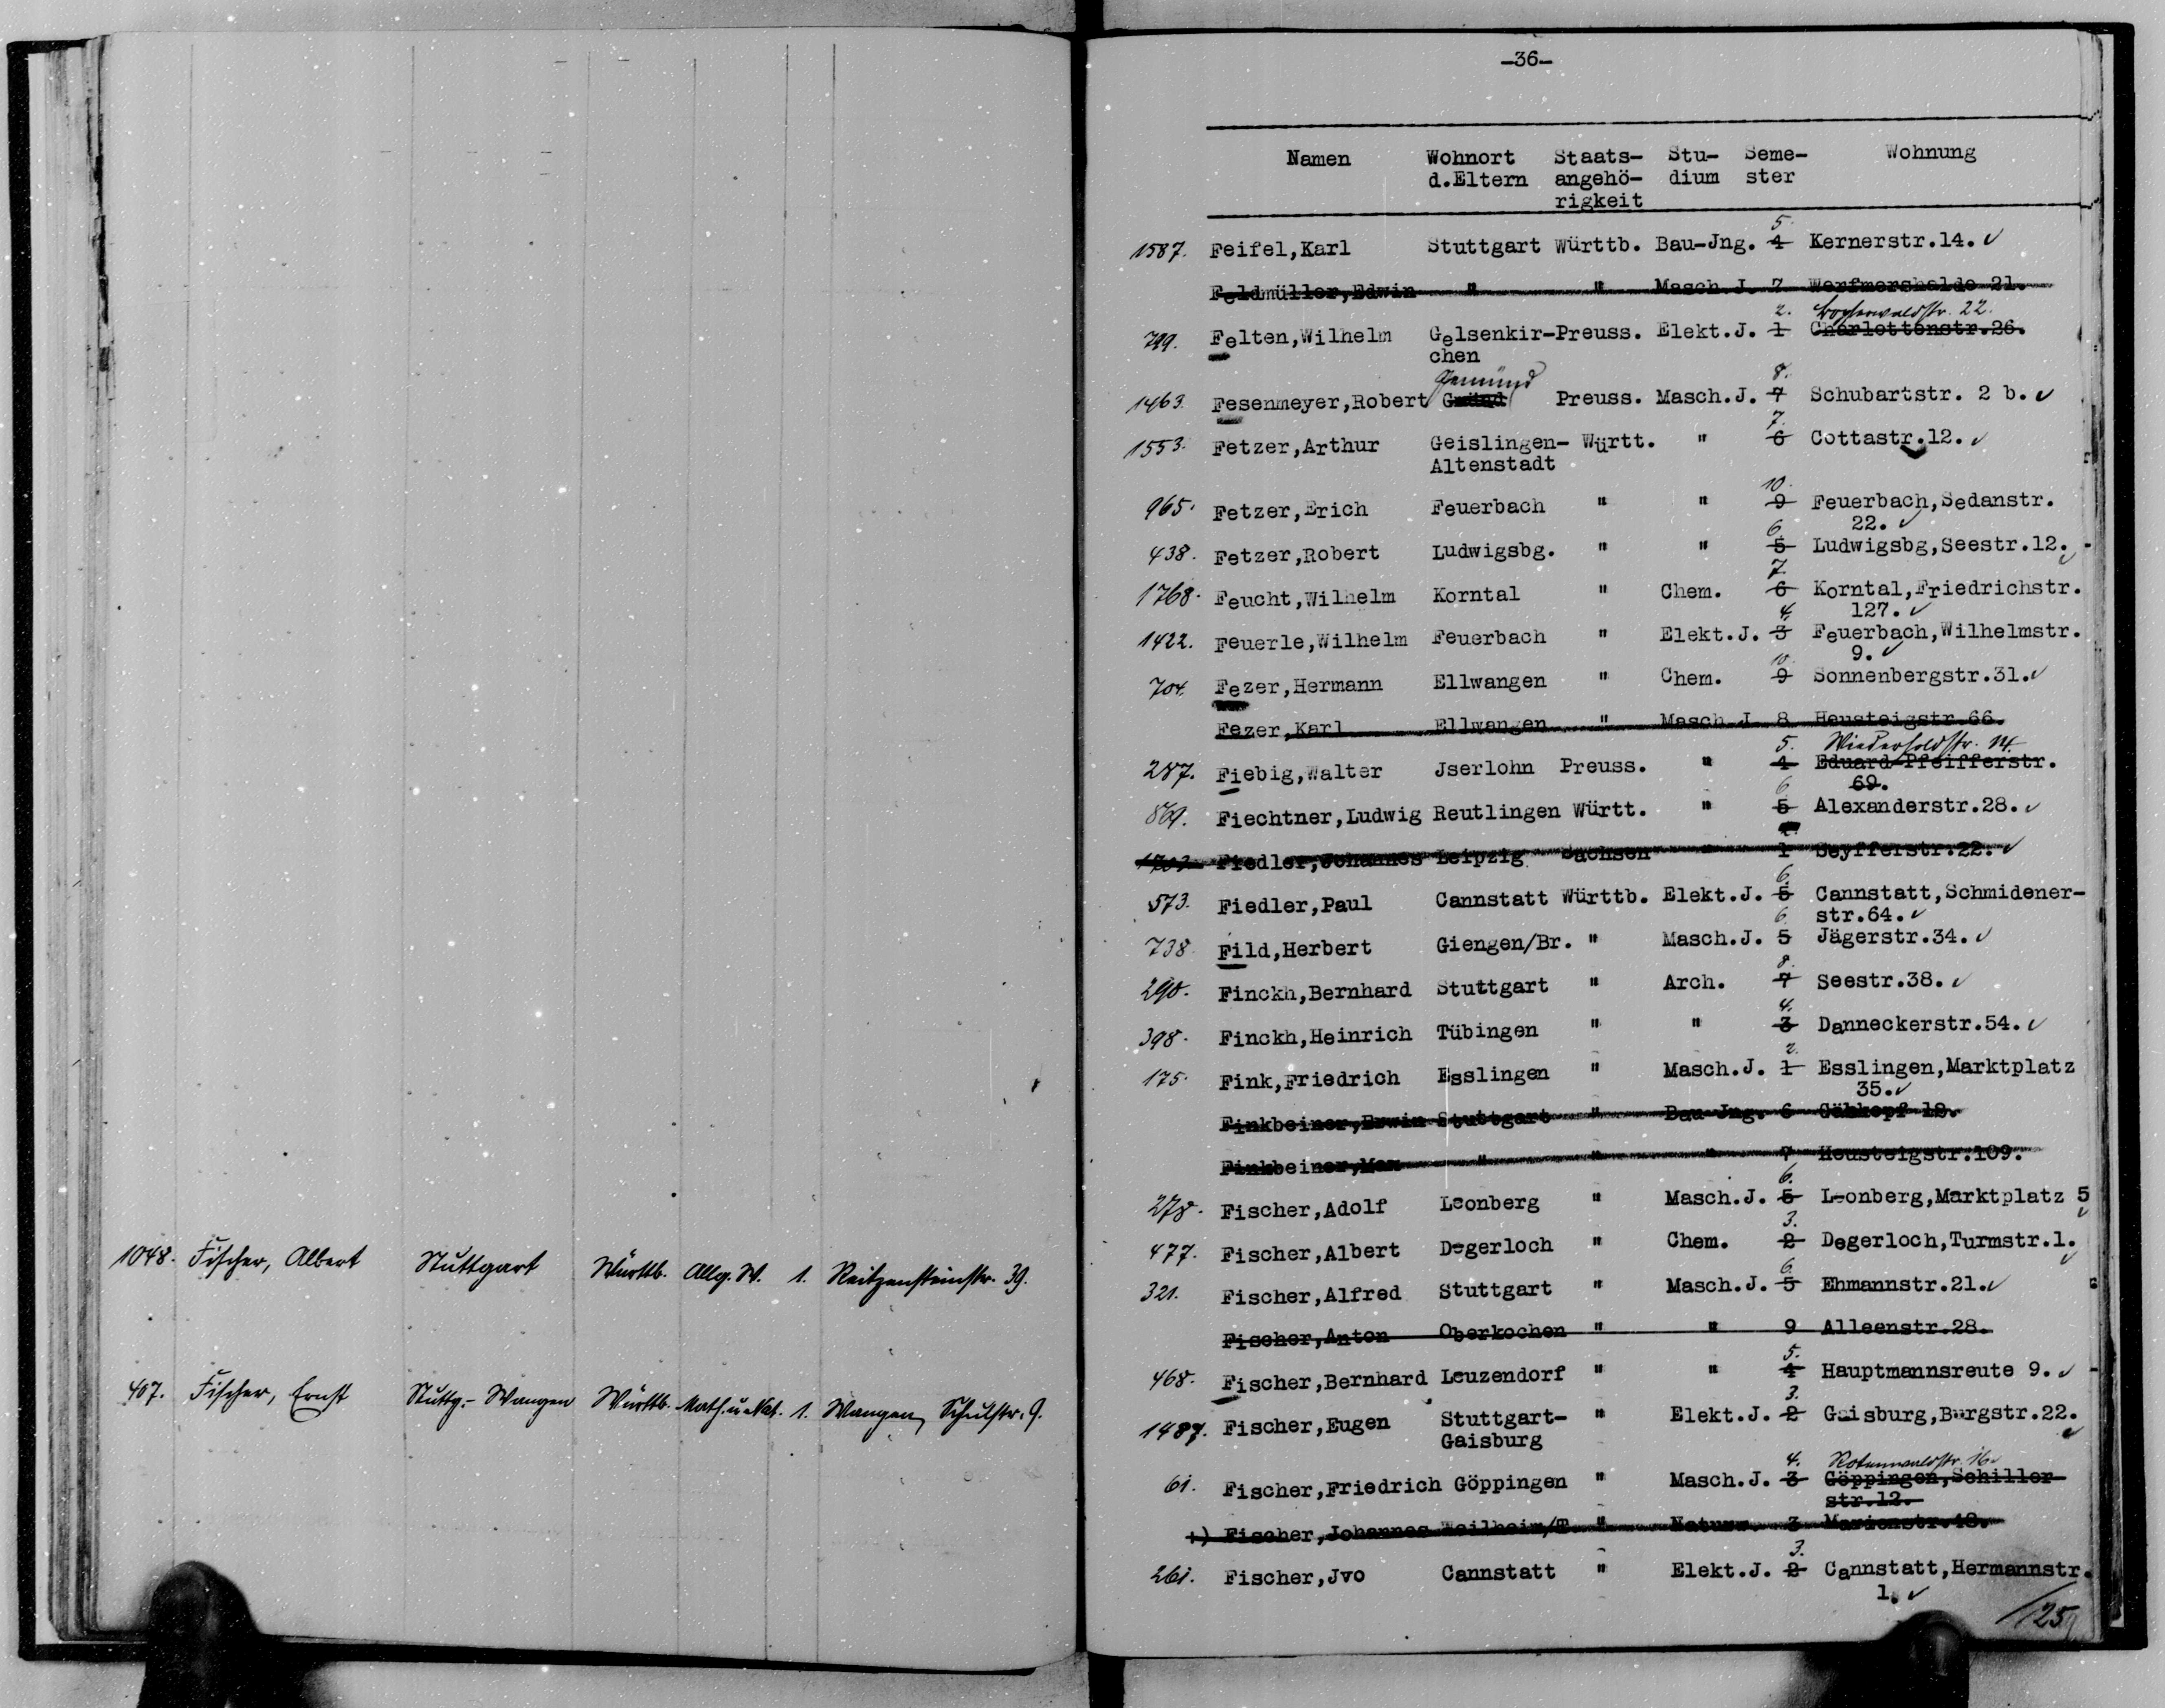 1048. Fischer, Albert Stuttgart Württb. Allg. W. 1. Reitzensteinstr. 39.
407. Fischer, Ernst Stuttg.- Wangen Württb. Math.u.Nat. 1. Wangen, Schulstr. 9.
-36-
Namen Wohnort Staats- Stu- Seme- Wohnung
d.Eltern angehö- dium ster
rigkeit
5.
1587. Feifel,Karl Stuttgart Württb. Bau-Jng. 4 Kernerstr.14. ✓
Feldmüller,Edwin " " Masch.J. 7 Werfmershalde 21.
2. 22.
799. Felten,Wilhelm Gelsenkir-Preuss. Elekt.J. 1 Charlottenstr.26.
chen
Gemünd 8.
1463. Fesenmeyer,Robert Gmünd Preuss. Masch.J. 7 Schubartstr. 2 b. ✓
7.
1553. Fetzer,Arthur Geislingen- Württ. " 6 Cottastr.12. ✓
Altenstadt
10.
965. Fetzer,Erich Feuerbach " " 9 Feuerbach,Sedanstr.
6. 22. ✓
438. Fetzer,Robert Ludwigsbg. " " 5 Ludwigsbg,Seestr.12. ✓
7.
1768. Feucht,Wilhelm Korntal " Chem. 6 Korntal,Friedrichstr.
4. 127. ✓
1422. Feuerle,Wilhelm Feuerbach " Elekt.J. 3 Feuerbach,Wilhelmstr.
10. 9. ✓
704. Fezer,Hermann Ellwangen " Chem. 9 Sonnenbergstr.31. ✓
Fezer,Karl Ellwangen " Masch.J. 8 Heusteigstr.66.
5. Wiederholdstr. 14.
287. Fiebig,Walter Jserlohn Preuss. " 4 Eduard-Pfeifferstr.
6. 69.
869. Fiechtner,Ludwig Reutlingen Württ. " 5 Alexanderstr.28. ✓
2.
1703 Fiedler,Johannes Leipzig Sachsen " 1 Seyfferstr.22. ✓
6.
573. Fiedler,Paul Cannstatt Württb. Elekt.J. 5 Cannstatt,Schmidener-
6. str.64. ✓
738. Fild,Herbert Giengen/Br. " Masch.J. 5 Jägerstr.34. ✓
8.
290. Finckh,Bernhard Stuttgart " Arch. 7 Seestr.38. ✓
4.
398. Finckh,Heinrich Tübingen " " 3 Danneckerstr.54. ✓
2.
175. Fink,Friedrich Esslingen " Masch.J. 1 Esslingen,Marktplatz
35. ✓
Finkbeiner,Erwin Stuttgart " Bau-Jng. 6 Gähkopf 19.
Finkbeiner,Max " " " 7 Heusteigstr.109.
6.
278. Fischer,Adolf Leonberg " Masch.J. 5 Leonberg,Marktplatz 5 ✓
3.
477. Fischer,Albert Degerloch " Chem. 2 Degerloch,Turmstr.1. ✓
6.
321. Fischer,Alfred Stuttgart " Masch.J. 5 Ehmannstr.21. ✓
Fischer,Anton Oberkochen " " 9 Alleenstr.28.
5.
468. Fischer,Bernhard Leuzendorf " " 4 Hauptmannsreute 9. ✓
3.
1487. Fischer,Eugen Stuttgart- " Elekt.J. 2 Gaisburg,Burgstr.22. ✓
Gaisburg
4. Rotenwaldstr. 16.
61. Fischer,Friedrich Göppingen " Masch.J. 3 Göppingen,Schiller-
str.12.
+) Fischer,Johannes Weilheim/T. " Naturw. 3 Marienstr.48.
3.
261. Fischer,Jvo Cannstatt " Elekt.J. 2 Cannstatt,Hermannstr.
1. ✓